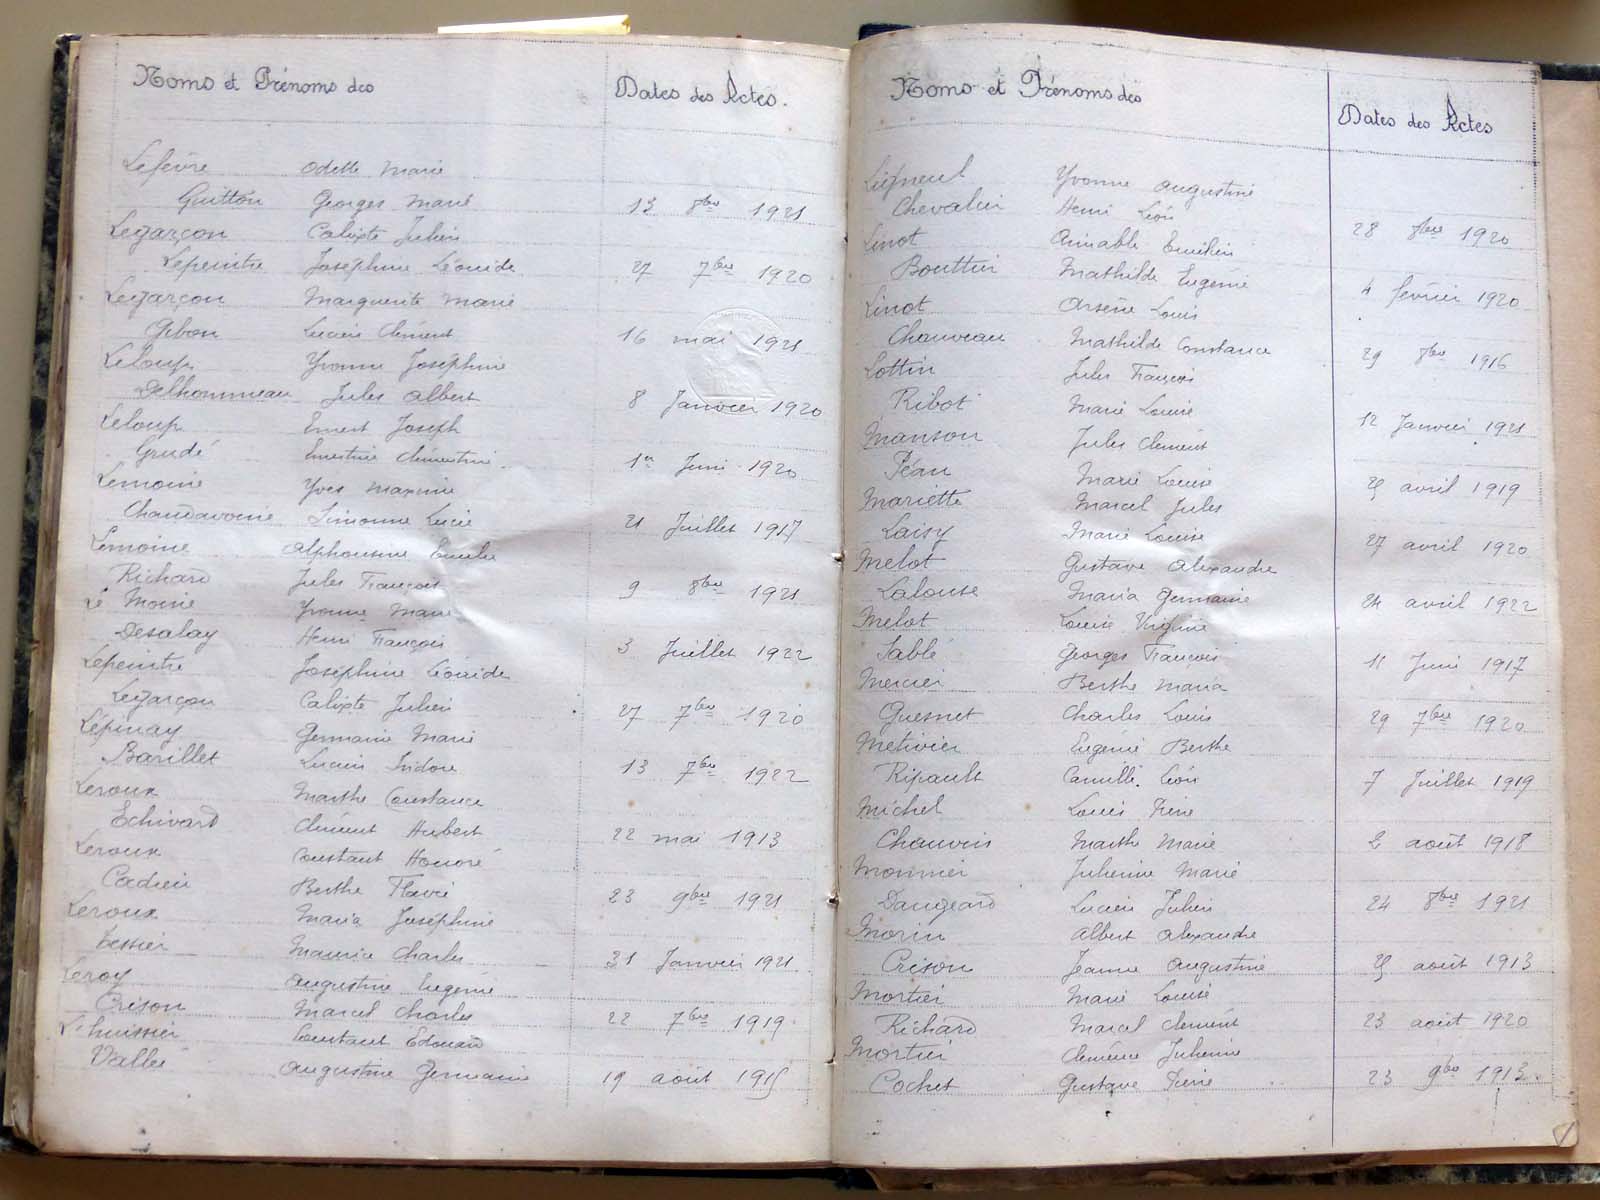 Noms et Prénoms des Dates des Actes.
Lefèvre Odette Marie
Guitton Georges Marie 13 8bre 1921
Legarçon Calixte Julien
Lepeintre Joséphine Léonide 27 7bre 1920
Legarçon Marguerite Marie
Gibon Lucien Clément 16 mai 1921
Leloup Yvonne Joséphine
Delhommeau Jules Albert 8 Janvier 1920
Leloup Ernest Joseph
Grudé Ernestine Clémentine 1er Juin 1920
Lemoine Yves Maxime
Chaudavoine Simonne Lucie 21 Juillet 1917
Lemoine Alphonsine Emilie
Richard Jules François 9 8bre 1921
Le Moine Yvonne Marie
Desalay Henri François 3 Juillet 1922
Lepeintre Joséphine Léonide
Legarçon Calixte Julien 27 7bre 1920
Lépinay Germaine Marie
Barillet Lucien Isidore 13 7bre 1922
Leroux Marthe Constance
Echivard Clément Hubert 22 mai 1913
Leroux Constant Honoré
Cadieu Berthe Flavie 23 9bre 1921
Leroux Maria Joséphine
Tessier Maurice Charles 31 Janvier 1921
Leroy Augustine Eugénie
Crison Marcel Charles 22 7bre 1919
L'huissier Constant Edouard
Vallée Augustine Germaine 19 août 1915
Noms et Prénoms des Dates des Actes
Yvonne Augustine
Chevalier Henri Léon 28 8bre 1920
Linot Aimable Emilien
Bouttier Mathilde Eugénie 4 février 1920
Linot Arsène Louis
Chauveau Mathilde Constance 29 8bre 1916
Lottin Jules François
Ribot Marie Louise 12 Janvier 1921
Manson Jules Clément
Péan Marie Louise 25 avril 1919
Mariette Marcel Jules
Laisy Marie Louise 27 avril 1920
Melot Gustave Alexandre
Lalouse Maria Germaine 24 avril 1922
Melot Louise Virginie
Sablé Georges François 11 Juin 1917
Mercier Berthe Maria
Quesnet Charles Louis 29 7bre 1920
Metivier Eugénie Berthe
Ripault Camille Léon 7 Juillet 1919
Michel Louis Pierre
Chauvin Marthe Marie 2 août 1918
Monnier Julienne Marie
Daugeard Lucien Julien 24 8bre 1921
Morin Albert Alexandre
Crison Jeanne Augustine 25 août 1913
Mortier Marie Louise
Richard Marcel Clément 23 août 1920
Mortier Clémence Julienne
Cochet Gustave Pierre 23 9bre 1913